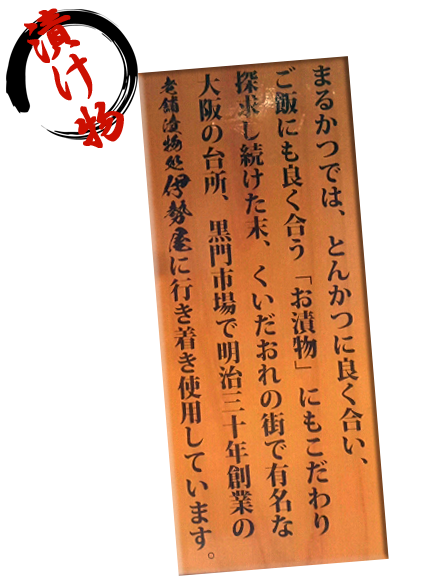 漬け物
まるかつでは、とんかつに良く合い、
ご飯にも良く合う「お漬物」にもこだわり
探求し続けた末、くいだおれの街で有名な
大阪の台所、黒門市場で明治三十年創業の
老舗漬物処伊勢屋に行き着き使用しています。